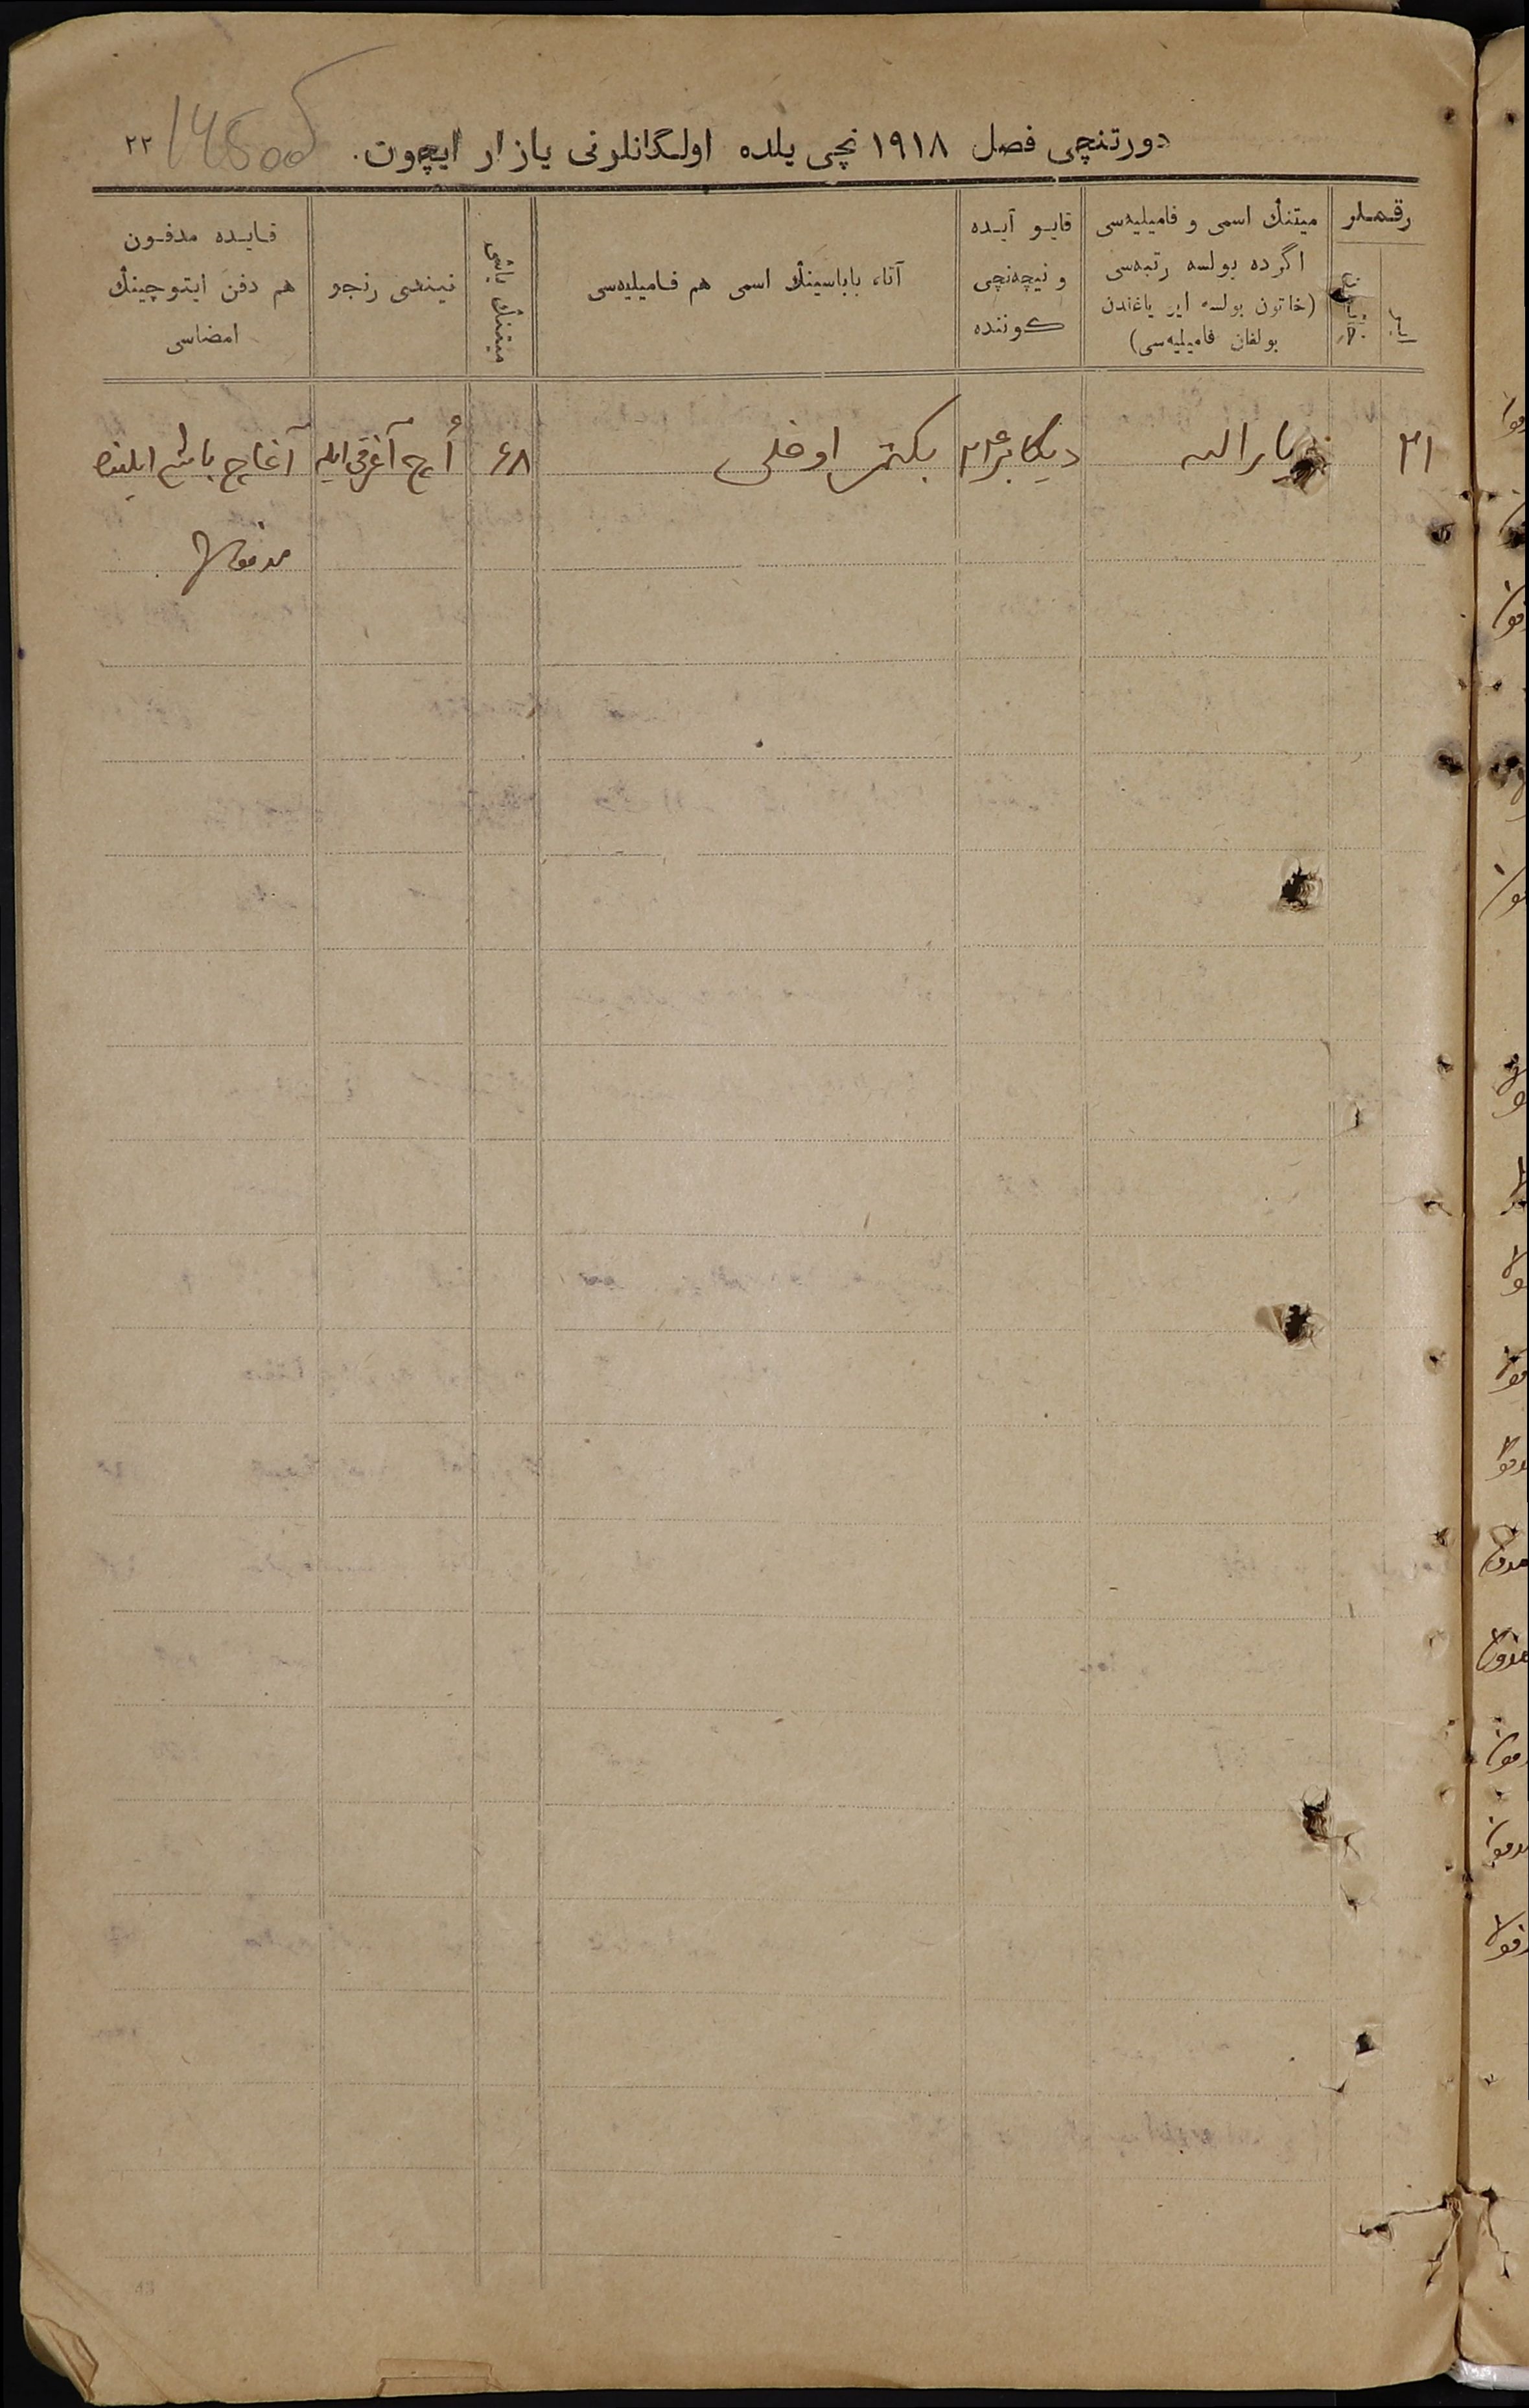 دورتنچی فصل ۱۹۱۸ نچی یلده اولگانلرنی یازار ایچون.
۲۲
رقملر
میتنڭ اسمی و فامیلیه‌سی
اگرده بولسه رتبه‌سی
(خاتون بولسه ایر یاغندن
بولغان فامیلیه‌سی)
قایو آیده
و نیچه‌نچی
كوننده
آتا، باباسینڭ اسمی هم فامیلیه‌سی
میتنڭ یاشی
نیندی رنجو
قایده مدفون
هم دفن ایتوچینڭ
امضاسی
ایر
۲۱
یارالله
دیكابر ۲۳
بكتمر اوغلی
۶۸
اُچ آغرقی ایله
آغاچ باش ایلنده
مدفون